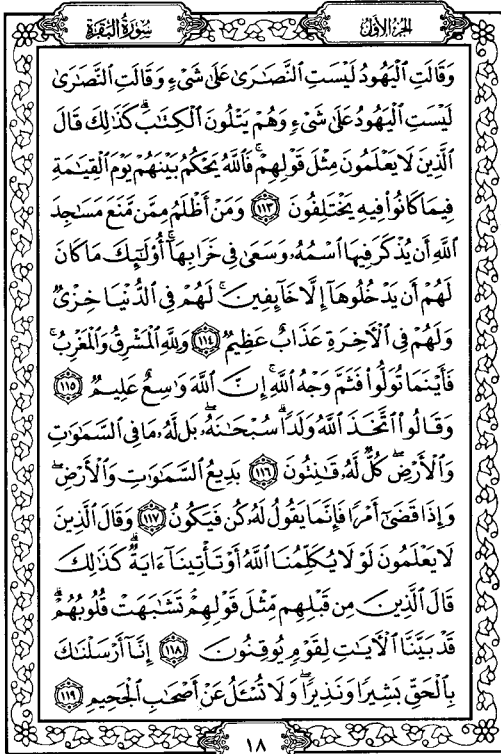 سُورَةُ البَقَرَةِ
الجُزْءُ الأَوَّلُ
وَقَالَتِ ٱلْيَهُودُ لَيْسَتِ ٱلنَّصَـٰرَىٰ عَلَىٰ شَىْءٍ وَقَالَتِ ٱلنَّصَـٰرَىٰ
لَيْسَتِ ٱلْيَهُودُ عَلَىٰ شَىْءٍ وَهُمْ يَتْلُونَ ٱلْكِتَـٰبَ ۗ كَذَٰلِكَ قَالَ
ٱلَّذِينَ لَا يَعْلَمُونَ مِثْلَ قَوْلِهِمْ ۚ فَٱللَّهُ يَحْكُمُ بَيْنَهُمْ يَوْمَ ٱلْقِيَـٰمَةِ
فِيمَا كَانُوا۟ فِيهِ يَخْتَلِفُونَ ١١٣ وَمَنْ أَظْلَمُ مِمَّن مَّنَعَ مَسَـٰجِدَ
ٱللَّهِ أَن يُذْكَرَ فِيهَا ٱسْمُهُۥ وَسَعَىٰ فِى خَرَابِهَآ ۚ أُو۟لَـٰٓئِكَ مَا كَانَ
لَهُمْ أَن يَدْخُلُوهَآ إِلَّا خَآئِفِينَ ۚ لَهُمْ فِى ٱلدُّنْيَا خِزْىٌ
وَلَهُمْ فِى ٱلْـَٔاخِرَةِ عَذَابٌ عَظِيمٌ ١١٤ وَلِلَّهِ ٱلْمَشْرِقُ وَٱلْمَغْرِبُ ۚ
فَأَيْنَمَا تُوَلُّوا۟ فَثَمَّ وَجْهُ ٱللَّهِ ۚ إِنَّ ٱللَّهَ وَٰسِعٌ عَلِيمٌ ١١٥
وَقَالُوا۟ ٱتَّخَذَ ٱللَّهُ وَلَدًا ۗ سُبْحَـٰنَهُۥ ۖ بَل لَّهُۥ مَا فِى ٱلسَّمَـٰوَٰتِ
وَٱلْأَرْضِ ۖ كُلٌّ لَّهُۥ قَـٰنِتُونَ ١١٦ بَدِيعُ ٱلسَّمَـٰوَٰتِ وَٱلْأَرْضِ ۖ
وَإِذَا قَضَىٰٓ أَمْرًا فَإِنَّمَا يَقُولُ لَهُۥ كُن فَيَكُونُ ١١٧ وَقَالَ ٱلَّذِينَ
لَا يَعْلَمُونَ لَوْلَا يُكَلِّمُنَا ٱللَّهُ أَوْ تَأْتِينَآ ءَايَةٌ ۗ كَذَٰلِكَ
قَالَ ٱلَّذِينَ مِن قَبْلِهِم مِّثْلَ قَوْلِهِمْ ۘ تَشَـٰبَهَتْ قُلُوبُهُمْ ۗ
قَدْ بَيَّنَّا ٱلْـَٔايَـٰتِ لِقَوْمٍ يُوقِنُونَ ١١٨ إِنَّآ أَرْسَلْنَـٰكَ
بِٱلْحَقِّ بَشِيرًا وَنَذِيرًا ۖ وَلَا تُسْـَٔلُ عَنْ أَصْحَـٰبِ ٱلْجَحِيمِ ١١٩
١٨